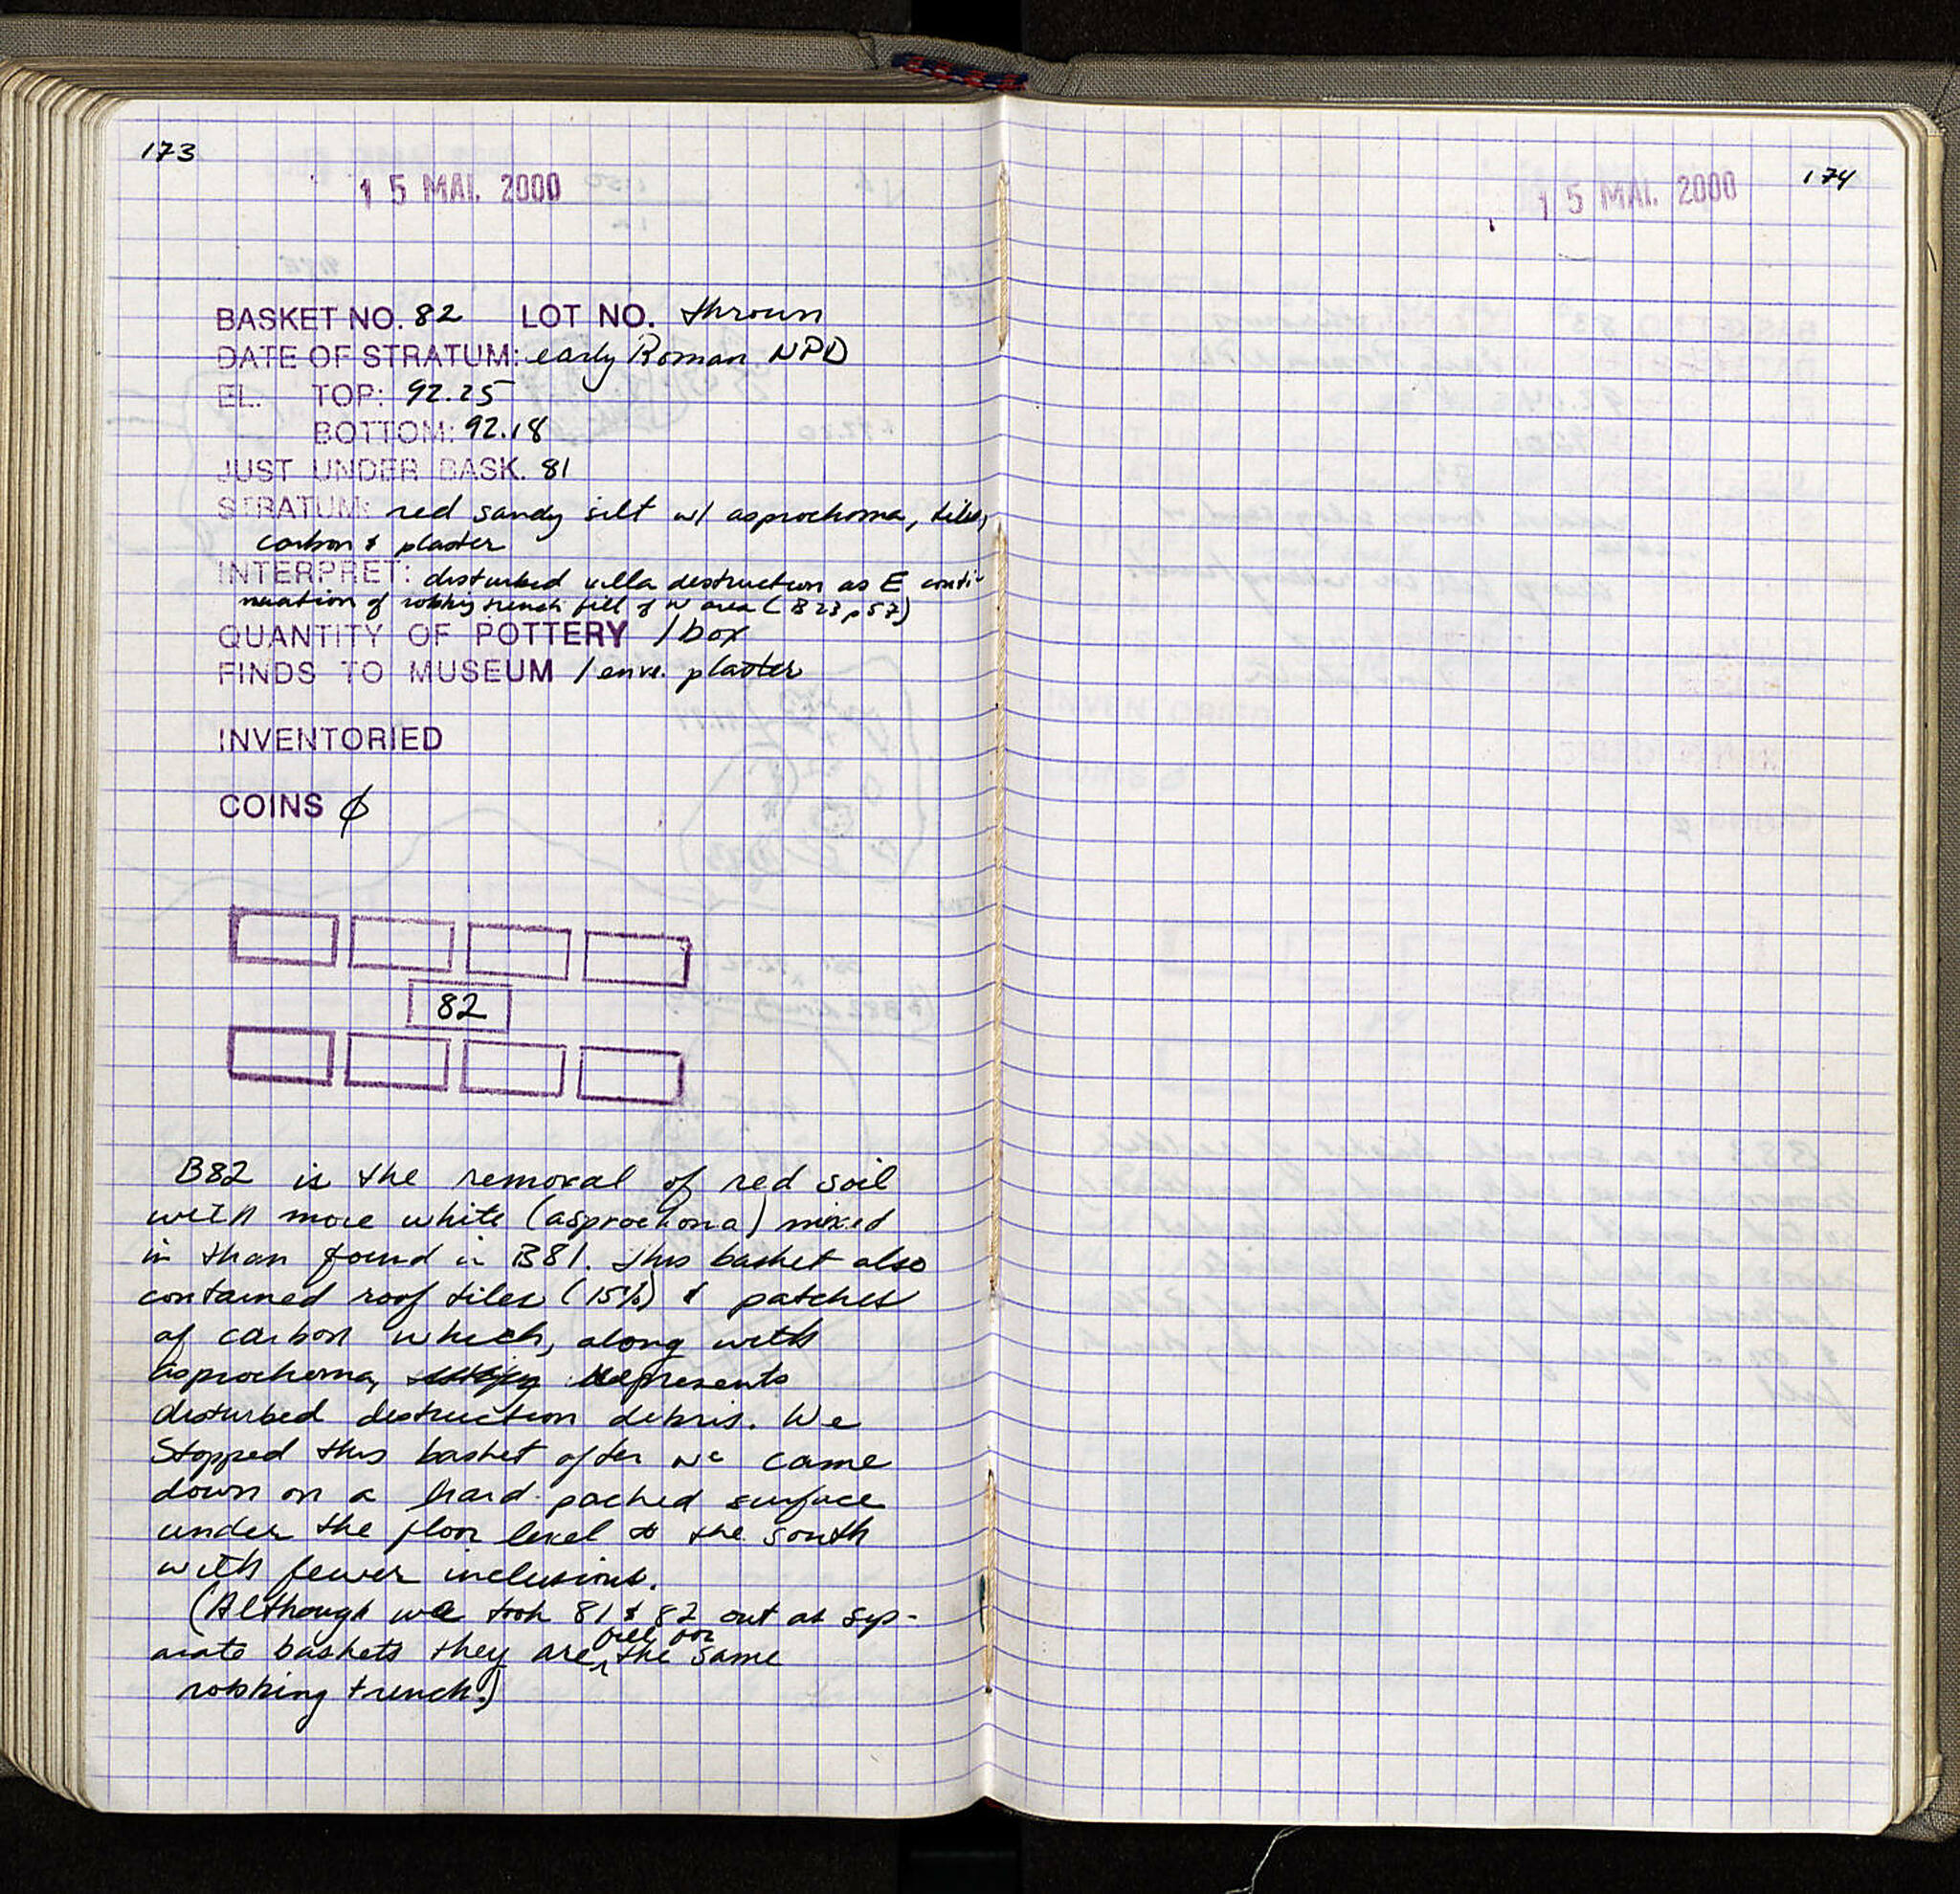 173
15 MAI. 2000
BASKET NO. 82 LOT NO. thrown
DATE OF STRATUM: early Roman NPD
EL. TOP: 92.25
BOTTOM: 92.18
JUST UNDER BASK. 81
STRATUM: red sandy silt w/ asprochoma, tiles,
carbon & plaster
INTERPRET: disturbed villa destruction as E conti-
nuation of robbing trench fill of W area (B23 p57)
QUANTITY OF POTTERY 1 box
FINDS TO MUSEUM 1 enve. plaster
INVENTORIED
COINS ∅
82
B82 is the removal of red soil
with more white (asprochoma) mixed
in than found in B81. This basket also
contained roof tiles (15%) & patches
of carbon which, along with
asprochoma, represents
disturbed destruction debris. We
stopped this basket after we came
down on a hard packed surface
under the floor level to the south
with fewer inclusions.
(Although we took 81 & 82 out as sep-
arate baskets they are fill for the same
robbing trench.)
174
15 MAI. 2000